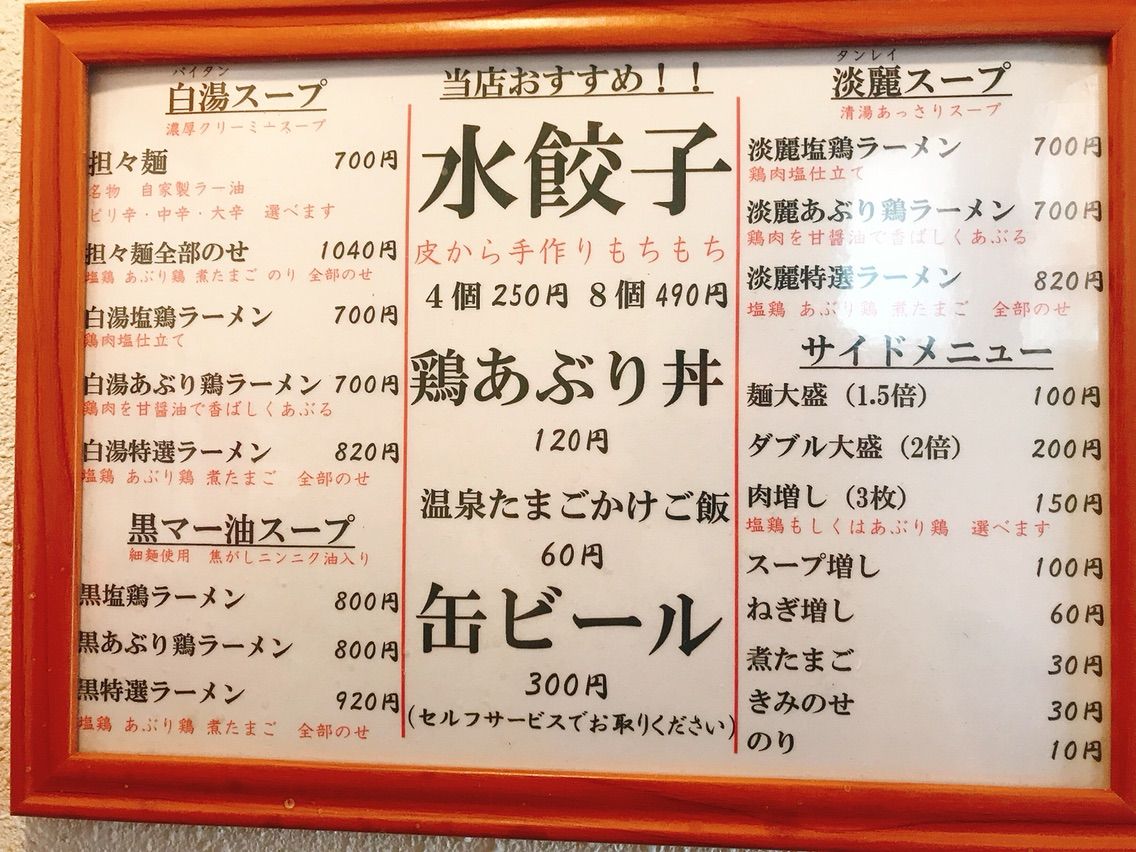 バイタン
白湯スープ
濃厚クリーミースープ
担々麺 700円
名物 自家製ラー油
ピリ辛・中辛・大辛 選べます
担々麺全部のせ 1040円
塩鶏 あぶり鶏 煮たまご のり 全部のせ
白湯塩鶏ラーメン 700円
鶏肉塩仕立て
白湯あぶり鶏ラーメン 700円
鶏肉を甘醤油で香ばしくあぶる
白湯特選ラーメン 820円
塩鶏 あぶり鶏 煮たまご 全部のせ
黒マー油スープ
細麺使用 焦がしニンニク油入り
黒塩鶏ラーメン 800円
黒あぶり鶏ラーメン 800円
黒特選ラーメン 920円
塩鶏 あぶり鶏 煮たまご 全部のせ
当店おすすめ！！
水餃子
皮から手作りもちもち
4個 250円 8個 490円
鶏あぶり丼
120円
温泉たまごかけご飯
60円
缶ビール
300円
(セルフサービスでお取りください)
タンレイ
淡麗スープ
清湯あっさりスープ
淡麗塩鶏ラーメン 700円
鶏肉塩仕立て
淡麗あぶり鶏ラーメン 700円
鶏肉を甘醤油で香ばしくあぶる
淡麗特選ラーメン 820円
塩鶏 あぶり鶏 煮たまご 全部のせ
サイドメニュー
麺大盛（1.5倍） 100円
ダブル大盛（2倍） 200円
肉増し（3枚） 150円
塩鶏もしくはあぶり鶏 選べます
スープ増し 100円
ねぎ増し 60円
煮たまご 30円
きみのせ 30円
のり 10円